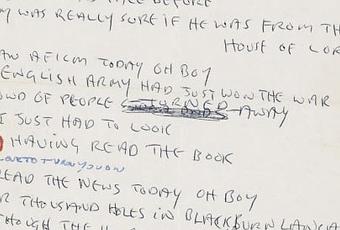 WAS REALLY SURE IF HE WAS FROM TH
HOUSE OF LOR
AW A FILM TODAY OH BOY
ENGLISH ARMY HAD JUST WON THE WAR
OWD OF PEOPLE TURNED AWAY
I JUST HAD TO LOOK
HAVING READ THE BOOK
LOVE TO TURN YOU ON
READ THE NEWS TODAY OH BOY
R THOUSAND HOLES IN BLACKBURN LANCA
THOUGH THE H